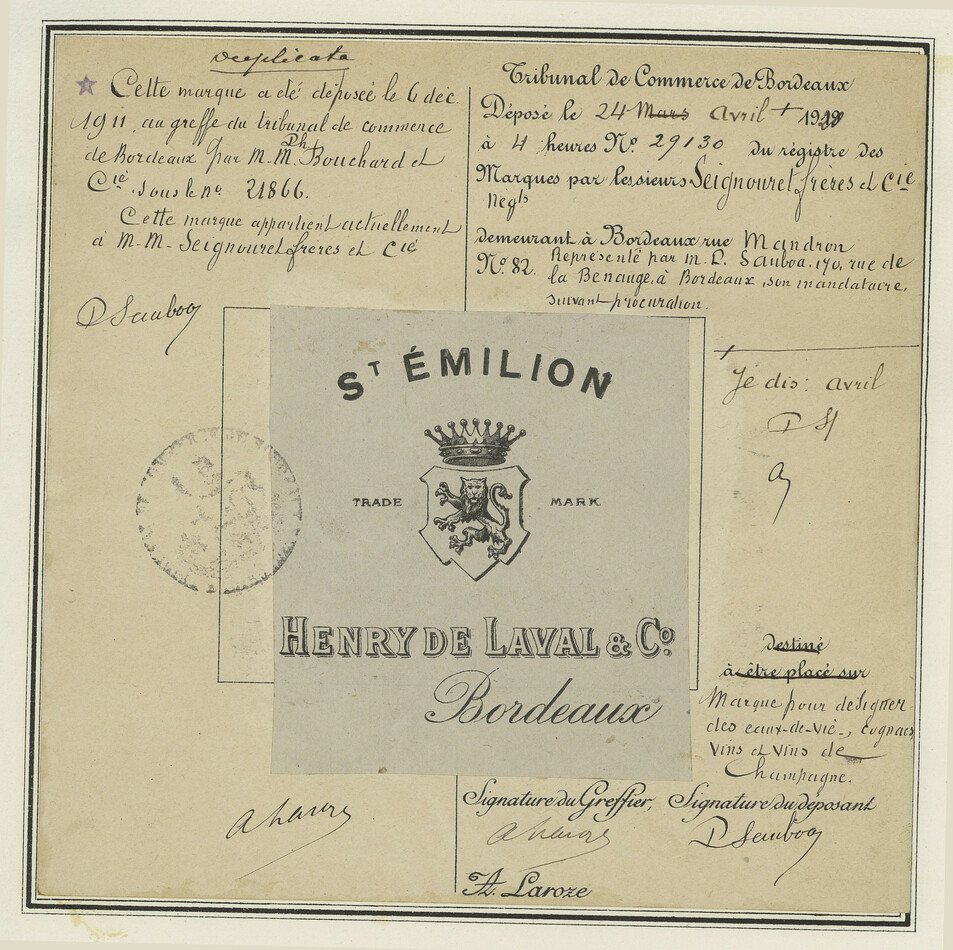 Duplicata
Cette marque a été déposée le 6 déc.
1911, au greffe du tribunal de commerce
de Bordeaux par M.M. Ph. Bouchard et
Cie, sous le n° 21866.
Cette marque appartient actuellement
à M.M. Seignouret frères et Cie
D Sauboa
Tribunal de Commerce de Bordeaux
Déposé le 24 Mars Avril + 19
à 4 heures N° 29130 du registre des
Marques par les sieurs Seignouret frères et Cie
Négts
demeurant à Bordeaux rue Mandron
N° 82. Représenté par M. D. Sauboa, 170, rue de
la Benauge, à Bordeaux, son mandataire,
suivant procuration.
+ Je dis: avril
D S
ST ÉMILION
TRADE MARK
HENRY DE LAVAL & Co.
Bordeaux
destiné
à être placé sur
Marque pour désigner
des eaux-de-vie, cognacs
vins et vins de
Champagne.
Signature du Greffier, Signature du déposant
A Laroze D Sauboa
A Laroze
A. Laroze